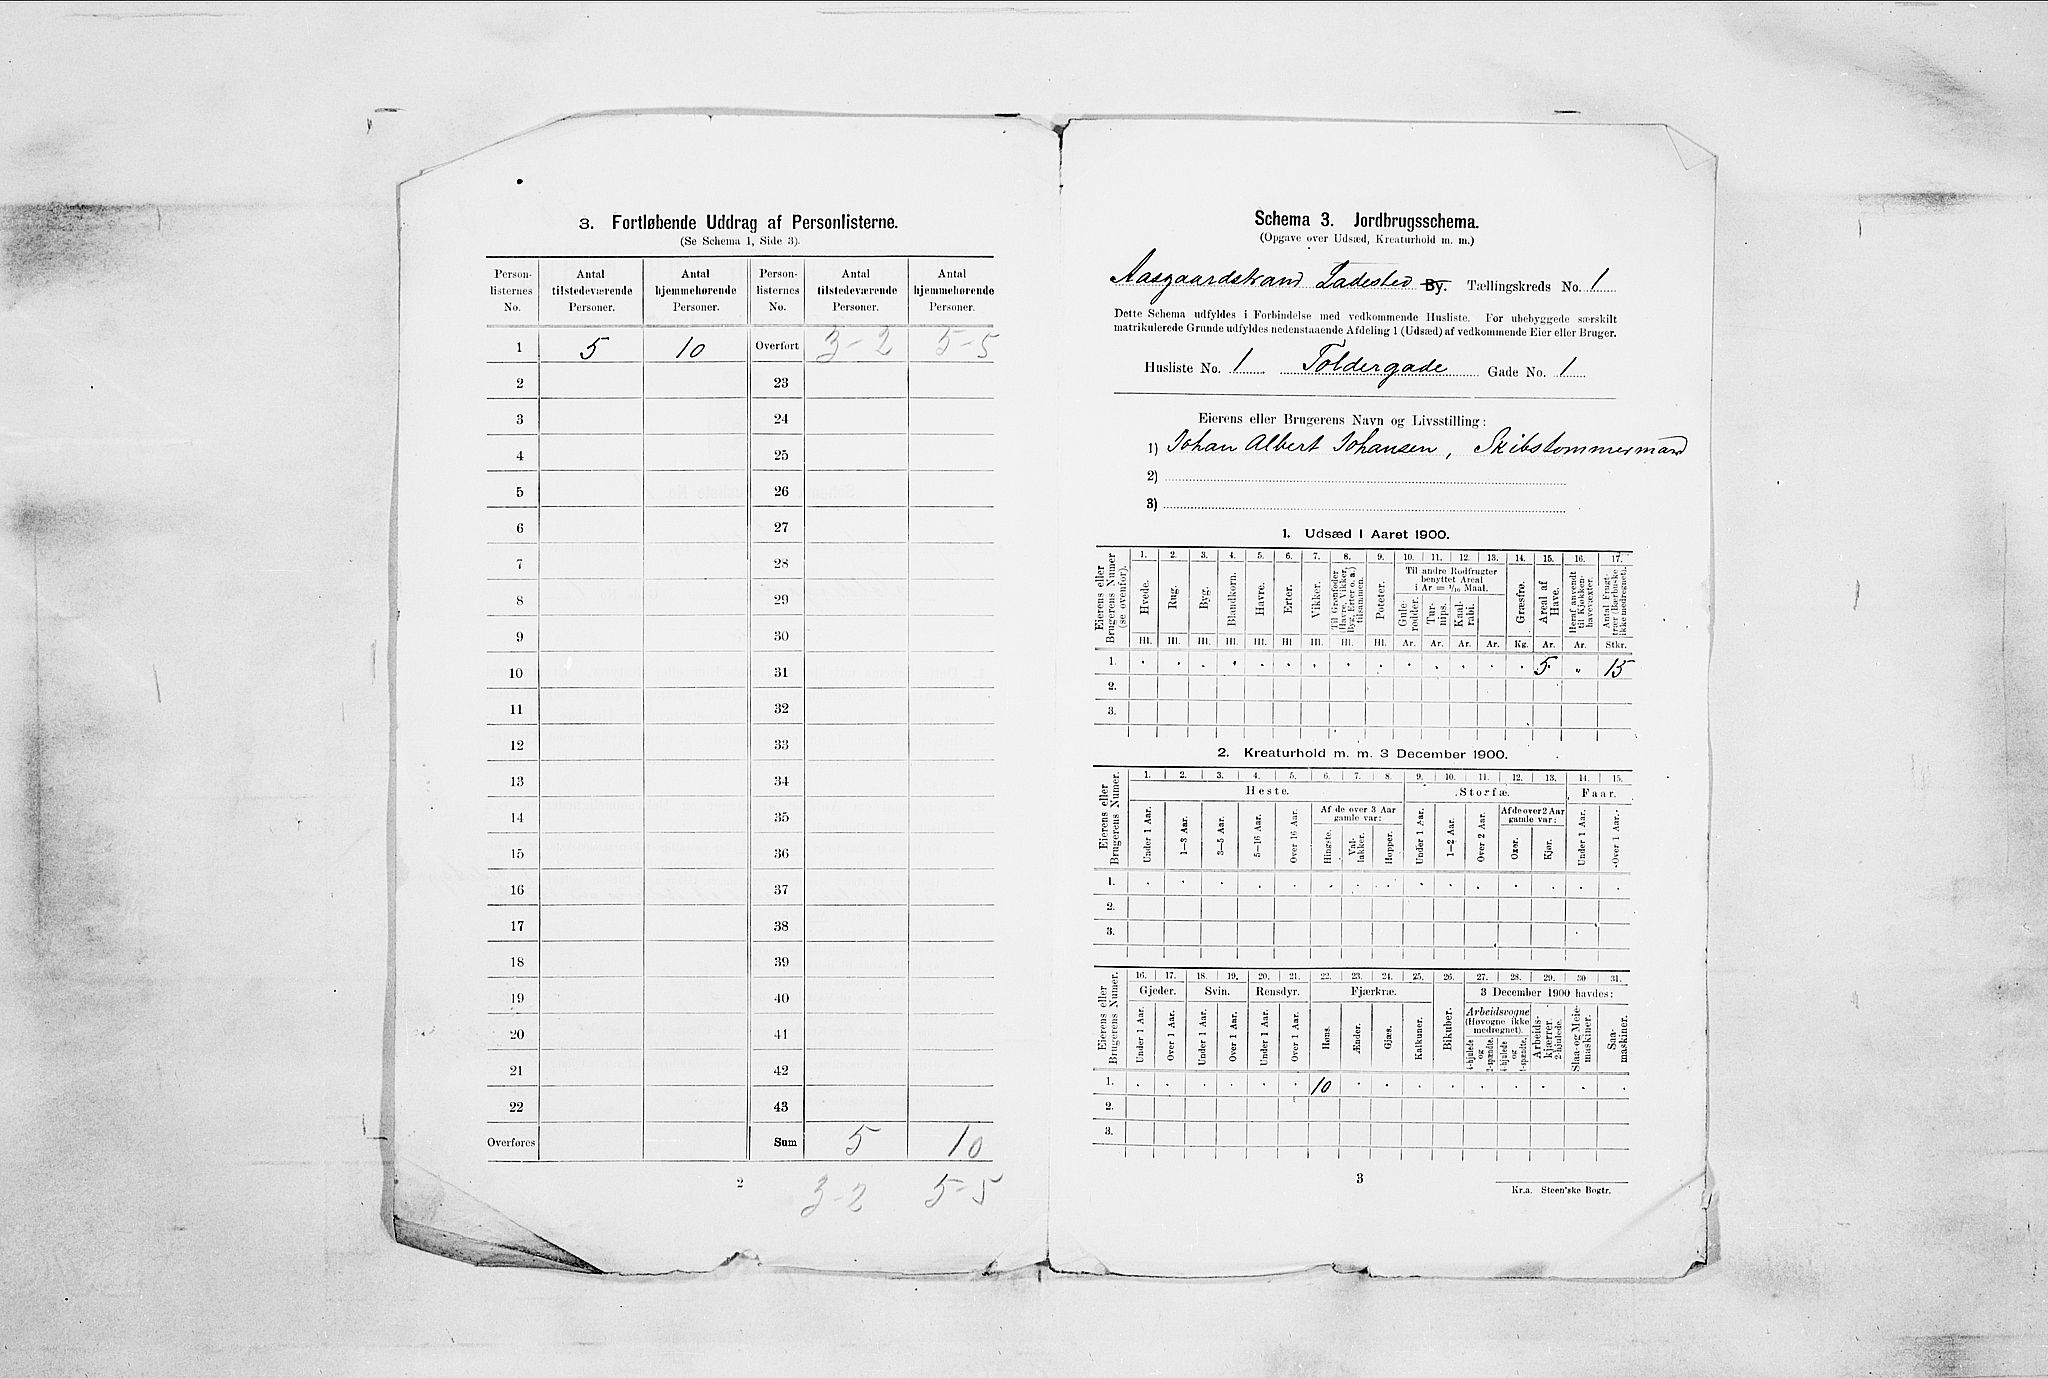 3. Fortløbende Uddrag af Personlisterne.
(Se Schema 1, Side 3).
Person-listernes No. | Antal tilstedeværende Personer. | Antal hjemmehørende Personer. | Person-listernes No. | Antal tilstedeværende Personer. | Antal hjemmehørende Personer.
1 | 5 | 10 | Overført | 3-2 | 5-5
2 | 23
3 | 24
4 | 25
5 | 26
6 | 27
7 | 28
8 | 29
9 | 30
10 | 31
11 | 32
12 | 33
13 | 34
14 | 35
15 | 36
16 | 37
17 | 38
18 | 39
19 | 40
20 | 41
21 | 42
22 | 43
Overføres | Sum | 5 | 10
2
3-2 5-5
Schema 3. Jordbrugsschema.
(Opgave over Udsæd, Kreaturhold m. m.)
Aasgaardstrand Ladested By. Tællingskreds No. 1
Dette Schema udfyldes i Forbindelse med vedkommende Husliste. For ubebyggede særskilt
matrikulerede Grunde udfyldes nedenstaaende Afdeling 1 (Udsæd) af vedkommende Eier eller Bruger.
Husliste No. 1 Toldergade Gade No. 1
Eierens eller Brugerens Navn og Livsstilling:
1) Johan Albert Johansen, Skibstommermand
2)
3)
1. Udsæd i Aaret 1900.
Eierens eller Brugerens Numer (se ovenfor). | 1. | 2. | 3. | 4. | 5. | 6. | 7. | 8. | 9. | 10. | 11. | 12. | 13. | 14. | 15. | 16. | 17.
Hvede. | Rug. | Byg. | Blandkorn. | Havre. | Erter. | Vikker. | Til Grønfoder (Havre, Vikker, Byg, Erter o. a.) tilsammen. | Poteter. | Til andre Rodfrugter benyttet Areal i Ar = 1/10 Maal. | Gulerødder. | Turnips. | Kaalrabi. | Græsfrø. | Areal af Have. | Heraf anvendt til Kjøkkenhavevæxter. | Antal Frugttrær (Bærbuske ikke medregnet).
Hl. | Hl. | Hl. | Hl. | Hl. | Hl. | Hl. | Hl. | Hl. | Ar. | Ar. | Ar. | Ar. | Kg. | Ar. | Ar. | Stkr.
1. | · | · | · | · | · | · | · | · | · | · | · | · | · | · | 5 | „ | 15
2.
3.
2. Kreaturhold m. m. 3 December 1900.
Eierens eller Brugerens Numer. | 1. | 2. | 3. | 4. | 5. | 6. | 7. | 8. | 9. | 10. | 11. | 12. | 13. | 14. | 15.
Heste. | Storfæ. | Faar.
Af de over 3 Aar gamle var: | Af de over 2 Aar gamle var:
Under 1 Aar. | 1—3 Aar. | 3—5 Aar. | 5—16 Aar. | Over 16 Aar. | Hingste. | Vallakker. | Hopper. | Under 1 Aar. | 1—2 Aar. | Over 2 Aar. | Oxer. | Kjør. | Under 1 Aar. | Over 1 Aar.
1. | · | · | · | · | · | · | · | · | · | · | · | · | · | · | ·
2.
3.
Eierens eller Brugerens Numer. | 16. | 17. | 18. | 19. | 20. | 21. | 22. | 23. | 24. | 25. | 26. | 27. | 28. | 29. | 30 | 31.
Gjeder. | Svin. | Rensdyr. | Fjærkræ. | Bikuber. | 3 December 1900 havdes:
Arbeidsvogne (Høvogne ikke medregnet).
Under 1 Aar. | Over 1 Aar. | Under 1 Aar. | Over 1 Aar. | Under 1 Aar. | Over 1 Aar. | Høns. | Ænder. | Gjæs. | Kalkuner. | 4-hjulede og 2-spændte. | 4-hjulede og 1-spændte. | Arbeidskjærrer. 2-hjulede. | Slaa- og Meiemaskiner. | Saamaskiner.
1. | · | · | · | · | · | · | 10 | · | · | · | · | · | · | · | · | ·
2.
3.
3
Kr.a. Steen'ske Bogtr.